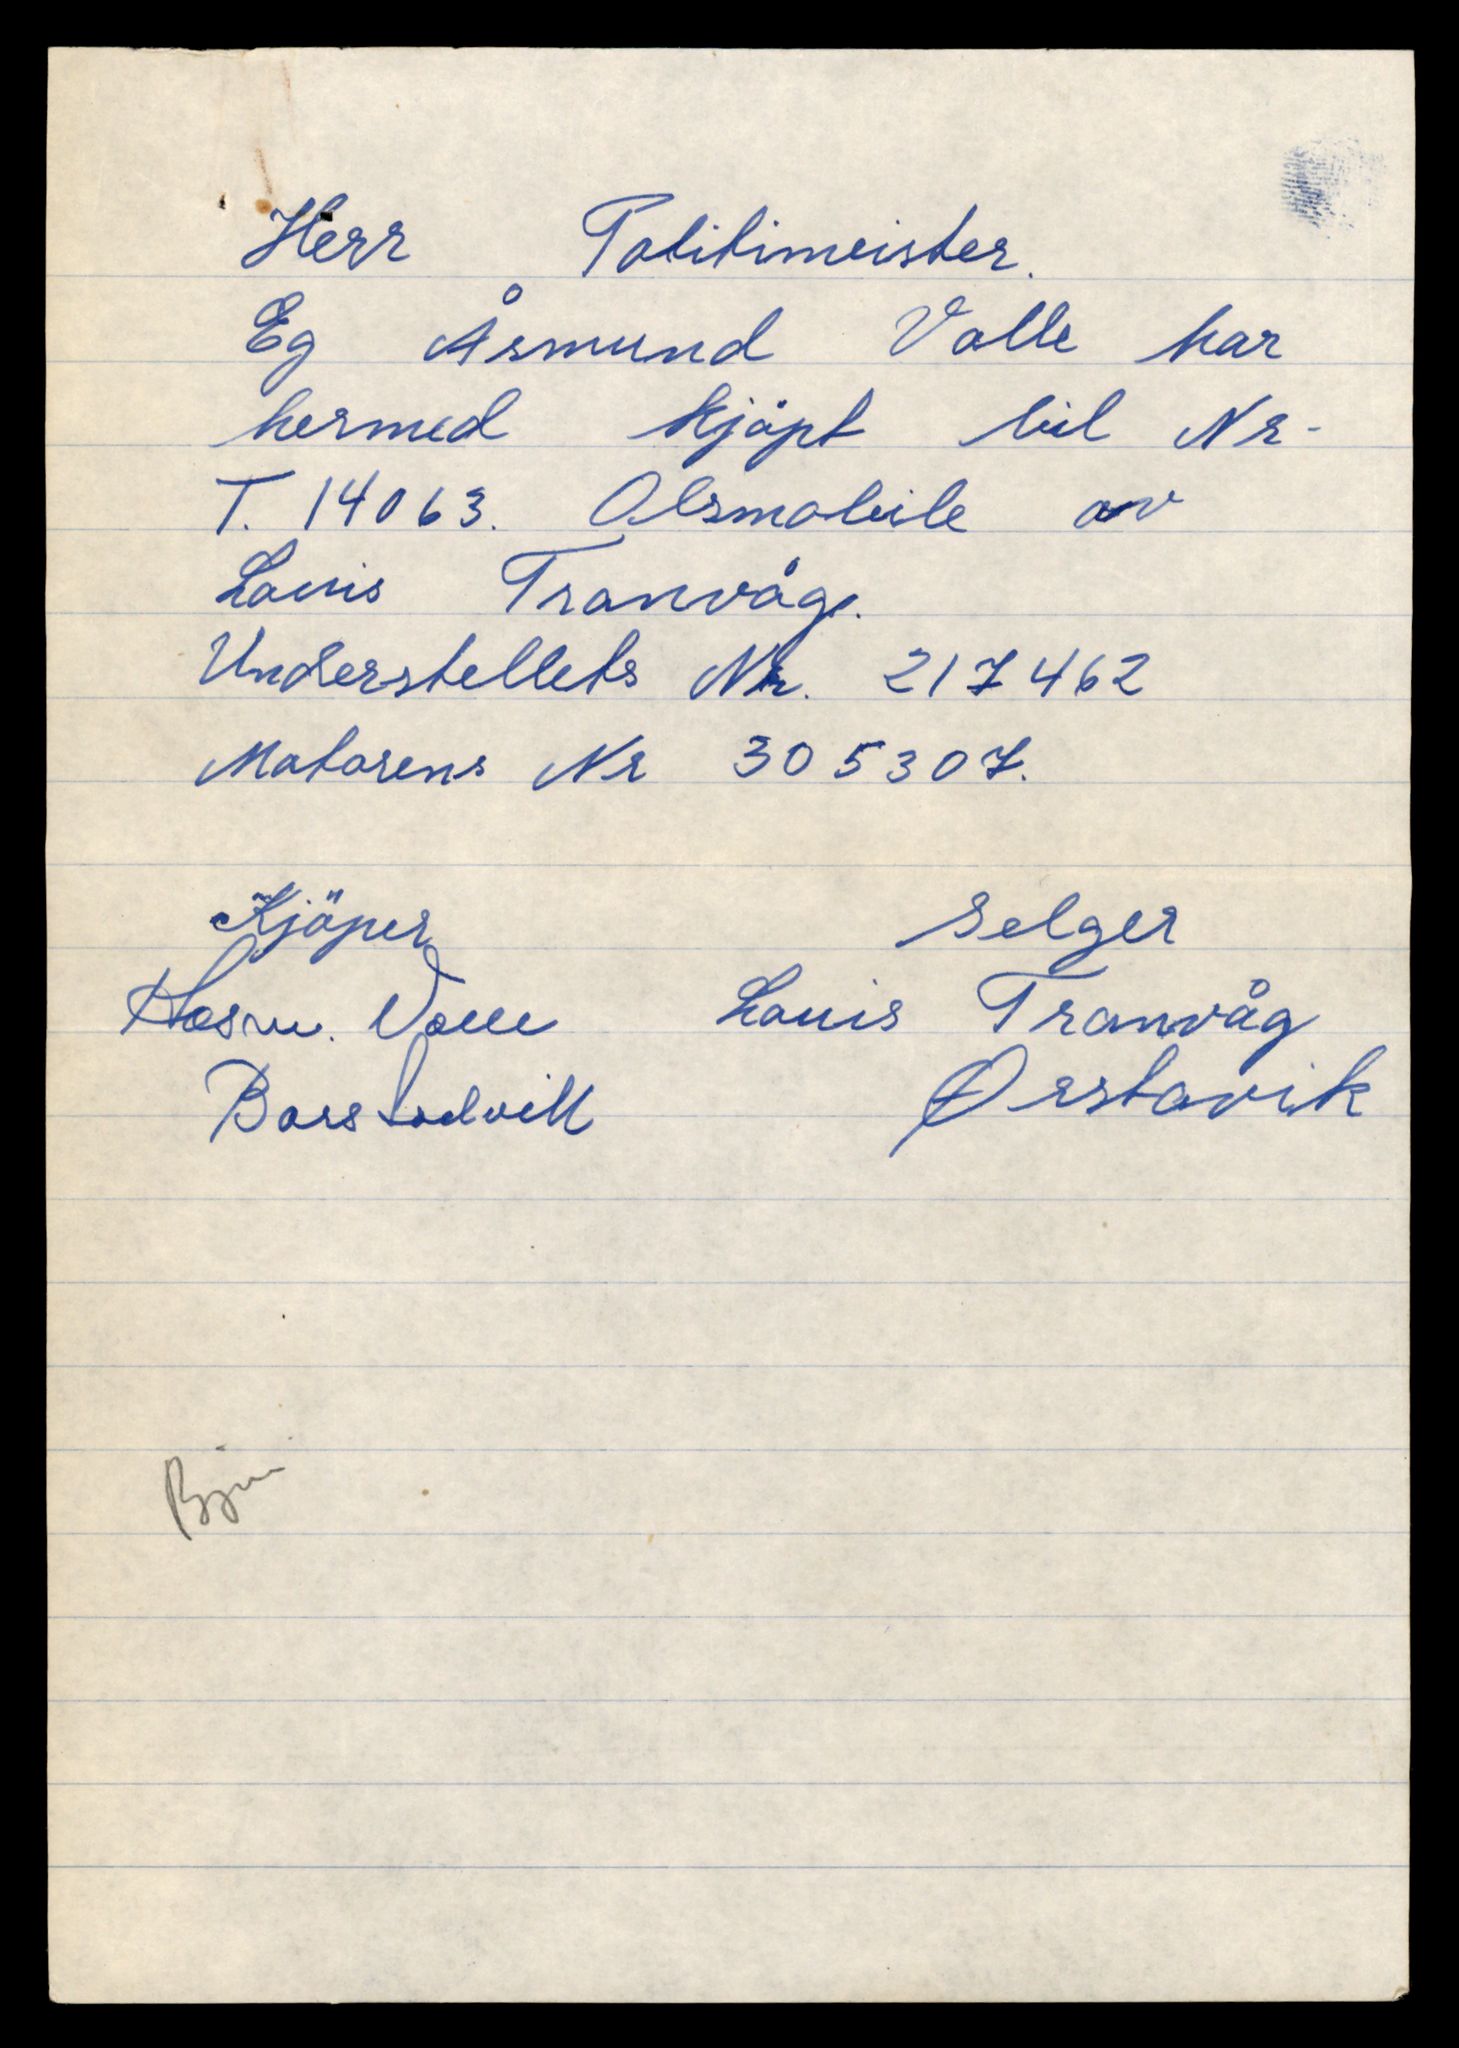 Herr Politimeister.
Eg Åsmund Valle har
hermed kjöpt bil Nr-
T. 14063. Olsmobile av
Louis Tranvåg.
Understellets Nr. 217462
Motorens Nr 305307.
Kjöper selger
Aasm. Valle Louis Tranvåg
Barstadvik Ørstavik